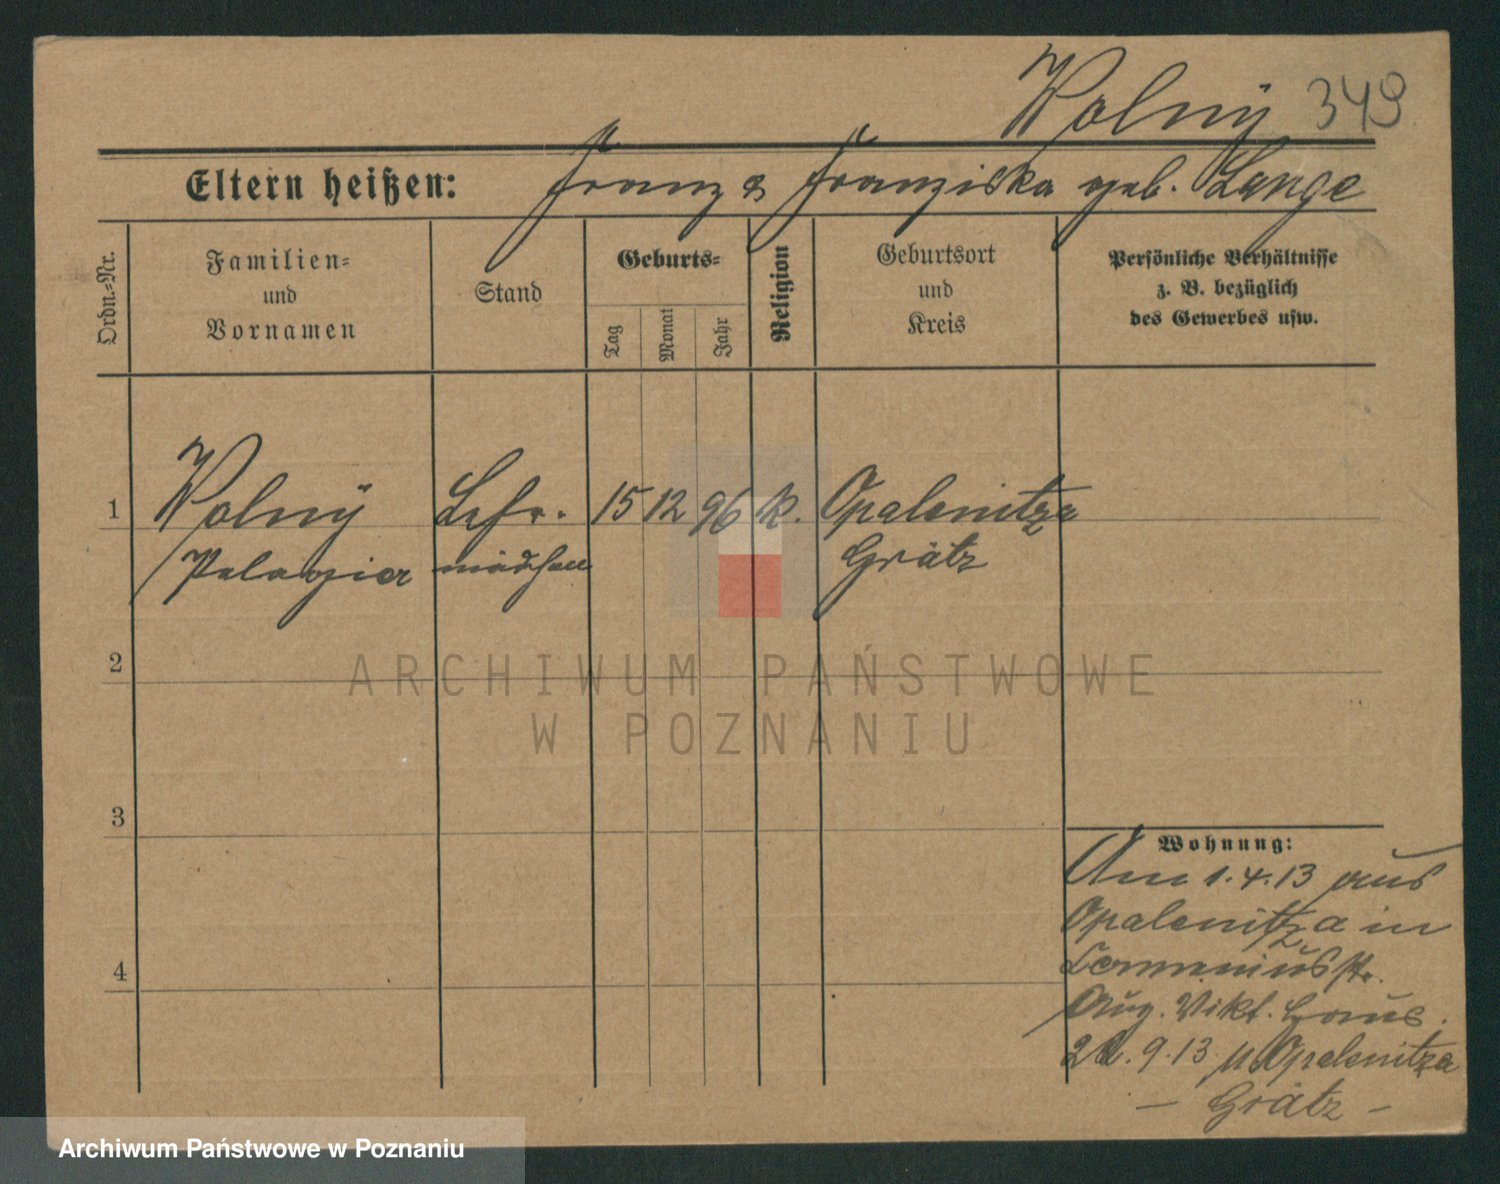 Wolny 349
Eltern heißen: Franz & Franziska geb. Lange
Ordn.-Nr.
Familien-
und
Vornamen
Stand
Geburts-
Tag
Monat
Jahr
Religion
Geburtsort
und
Kreis
Persönliche Verhältnisse
z. B. bezüglich
des Gewerbes usw.
1 Wolny Lehr- 15 12 96 k. Opalenitza
Pelagia mädchen Grätz
2
3
4
Wohnung:
Am 1.4.13 aus
Opalenitza in
Commeniusstr.
Aug. Vikt. Haus.
9.13 n Opalenitza
- Grätz -
ARCHIWUM PAŃSTWOWE
W POZNANIU
Archiwum Państwowe w Poznaniu